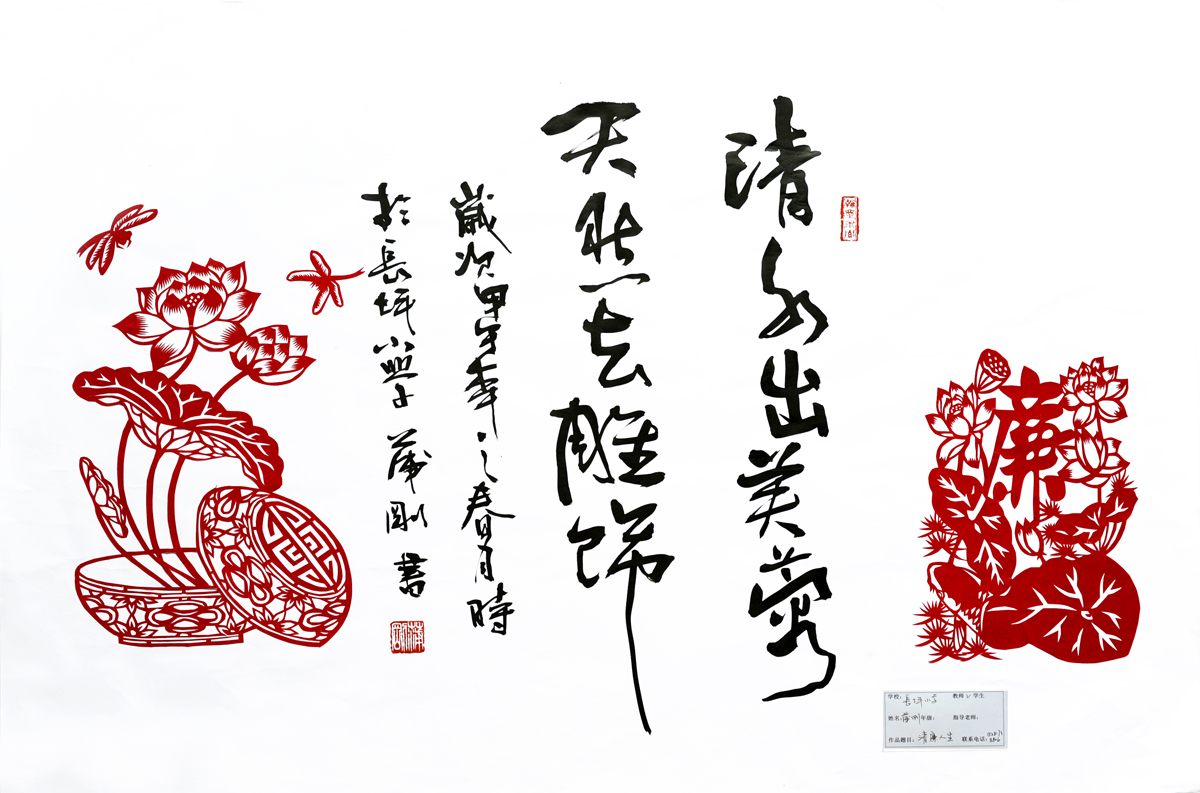 清水出芙蓉
天然去雕飾
歲次甲午年之春月時
於長坪小學蒲剛書
廉
学校：長坪小学 教师 学生
姓名：蒲刚 年级： 指导老师：
作品题目：清廉人生 联系电话：